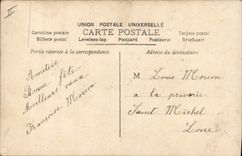 UNION POSTALE UNIVERSELLE
CARTE POSTALE
Cartolina postale
Tarjeta postal
Bilhete postal
Levelezo-Lap. Postcard Postkarte
Briefkaart
Partie réservée à la correspondance
Adresse du destinataire
Amitiés
Bonne fête
Meilleurs vœux
Françoise Morion
M Louis Morion
a la
Saint Michel
Loire